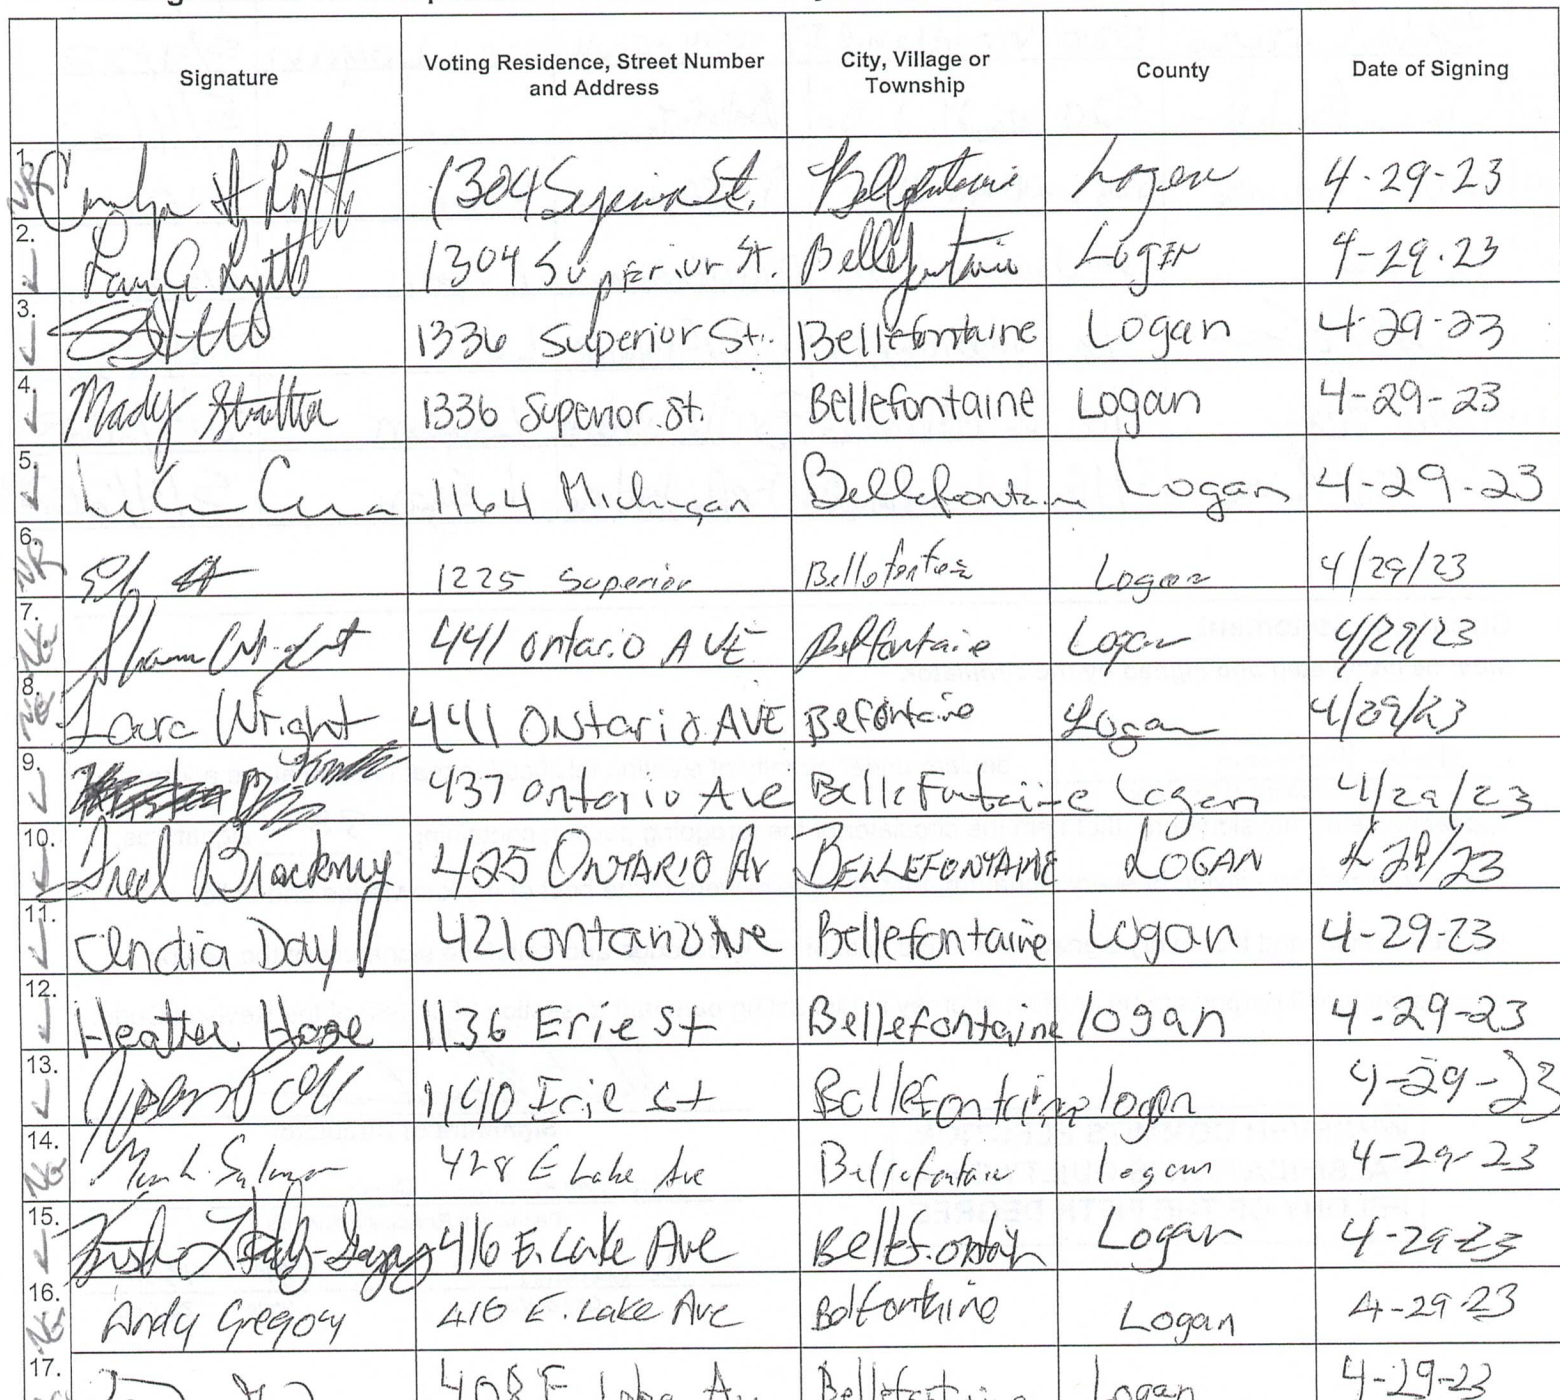 Signature Voting Residence, Street Number and Address City, Village or Township County Date of Signing
1. 1304 Superior St. Bellefontaine Logan 4-29-23
2. 1304 Superior St. Bellefontaine Logan 4-29-23
3. 1336 Superior St. Bellefontaine Logan 4-29-23
4. Mady 1336 Superior. St. Bellefontaine Logan 4-29-23
5. 1164 Michigan Bellefontain Logan 4-29-23
6. 1225 Superior Logan 4/29/23
7. Wright 441 Ontario AVE Belfontaine Logan 4/29/23
8. Wright 441 Ontario AVE Befontaine Logan 4/29/23
9. 437 Ontario Ave BelleFontaine Logan 4/29/23
10. Fred 425 ONTARIO AV BELLEFONTAINE LOGAN 23
11. Day 421 Ontario Ave Bellefontaine Logan 4-29-23
12. Heather 1136 Erie St Bellefontaine logan 4-29-23
13. 1140 Erie St logan 4-29-23
14. 428 E Lake Ave Bellefontaine Logan 4-29-23
15. 416 E. Lake Ave Logan 4-29-23
16. Andy Gregory 416 E. Lake Ave Logan 4-29-23
17. 408 E. Logan 4-29-23